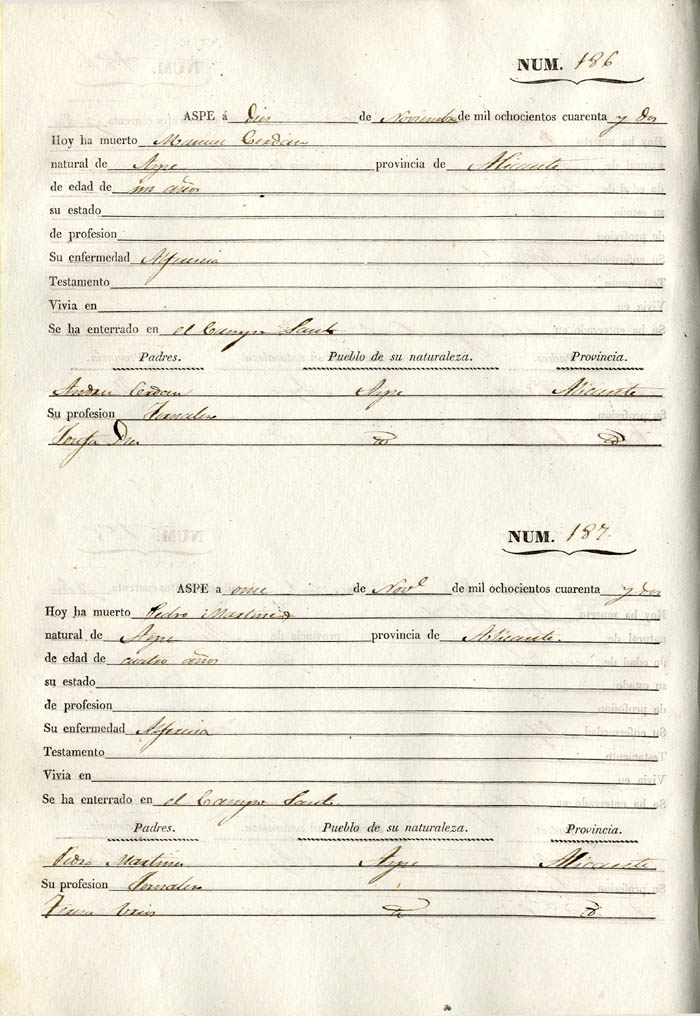 NUM. 186
ASPE á Diez de Noviembre de mil ochocientos cuarenta y dos
Hoy ha muerto Manuel Cerdan
natural de Aspe provincia de Alicante
de edad de un años
su estado
de profesion
Su enfermedad Alferecia
Testamento
Vivia en
Se ha enterrado en el Campo Santo
Padres. Pueblo de su naturaleza. Provincia.
Andres Cerdan Aspe Alicante
Su profesion Jornalero
Josefa id id
NUM. 187.
ASPE a once de Nov.e de mil ochocientos cuarenta y dos
Hoy ha muerto Pedro Martinez
natural de Aspe provincia de Alicante
de edad de cuatro años
su estado
de profesion
Su enfermedad Alferecia
Testamento
Vivia en
Se ha enterrado en el Campo Santo
Padres. Pueblo de su naturaleza. Provincia.
Pedro Martinez Aspe Alicante
Su profesion Jornalero
id id